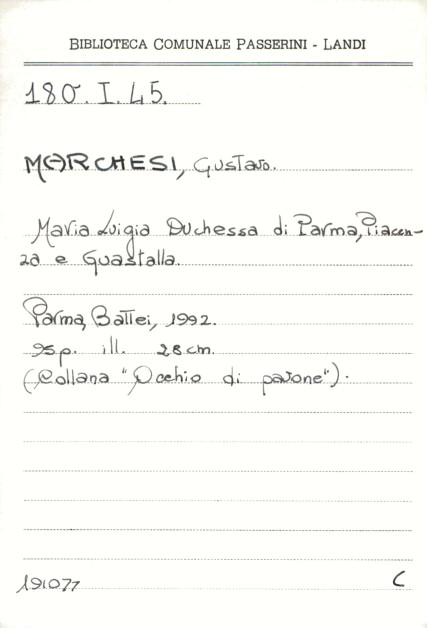 BIBLIOTECA COMUNALE PASSERINI - LANDI
180. I. 45.
MARCHESI, Gustavo.
Maria Luigia Duchessa di Parma, Piacen-
za e Guastalla.
Parma, Battei, 1992.
95 p. ill. 28 cm.
(Collana "Occhio di pavone").
191077 C